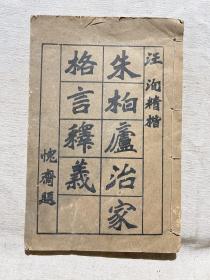 汪洵精楷
朱柏廬治家
格言釋義
愧齋題